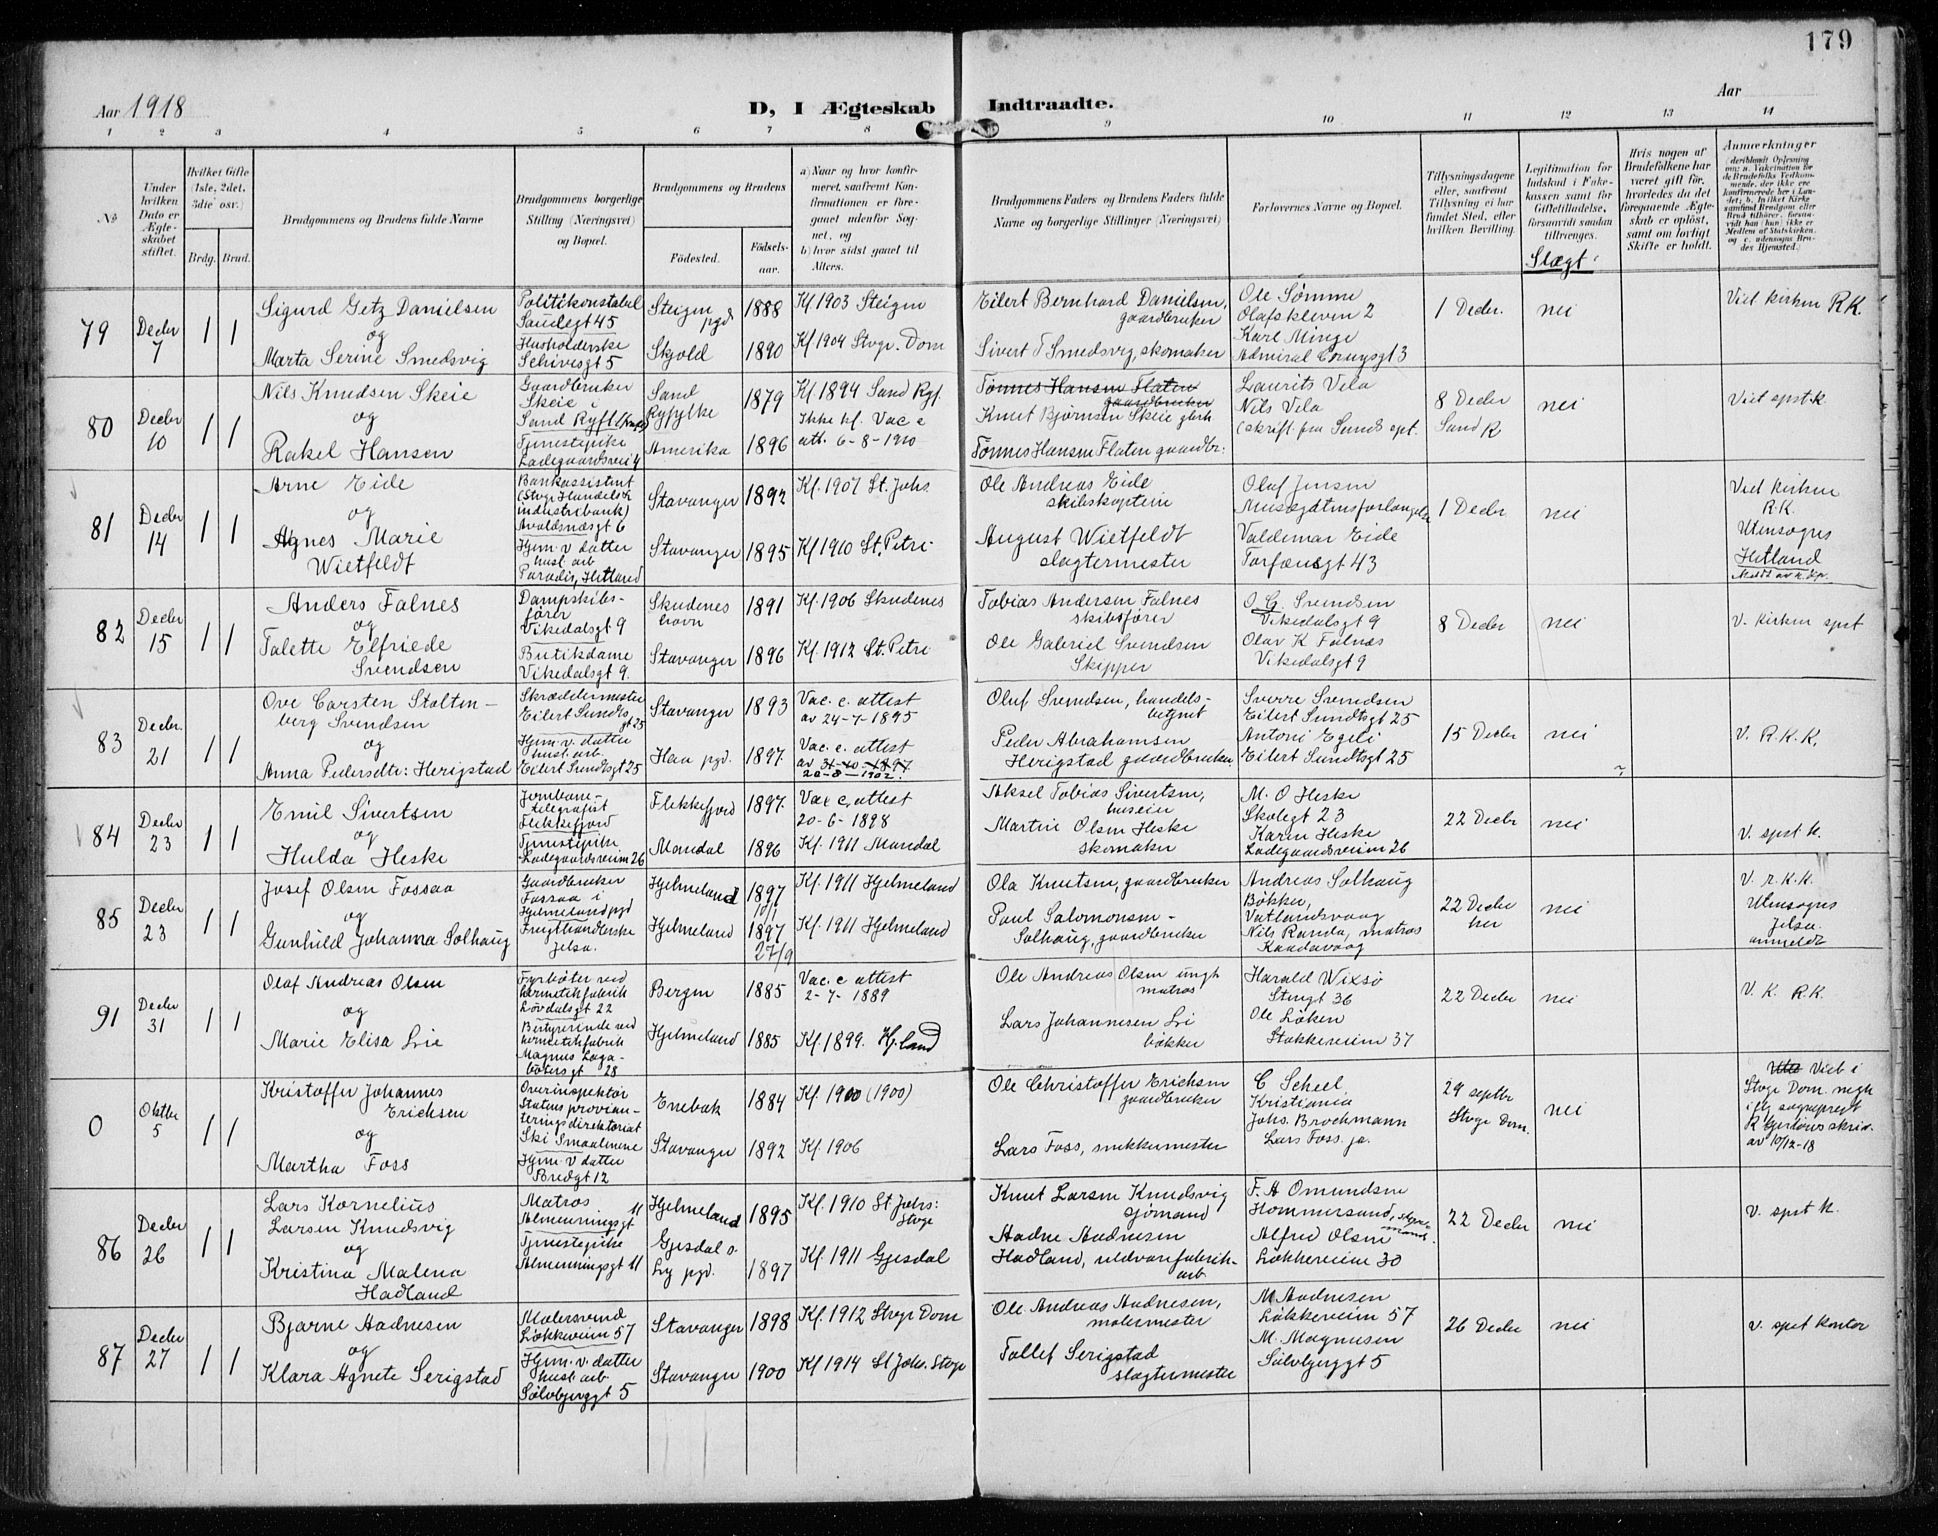 179
Aar 1918
D, I Ægteskab Indtraadte.
Aar
1 2 3 4 5 6 7 8 9 10 11 12 13 14
№
Under hvilken Dato er Ægteskabet stiftet.
Hvilket Gifte (1ste, 2det, 3die osv.)
Brdg. Brud.
Brudgommens og Brudens fulde Navne
Brudgommens borgerlige Stilling (Næringsvei) og Bopæl.
Brudgommens og Brudens
Fødested.
Fødselsaar.
a) Naar og hvor konfirmeret, saafremt Konfirmationen er foregaaet udenfor Sognet, og
b) hvor sidst gaaet til Alters.
Brudgommens Faders og Brudens Faders fulde Navne og borgerlige Stillinger (Næringsvei)
Forlovernes Navne og Bopæl.
Tillysningsdagene eller, saafremt Tillysning ei har fundet Sted, efter hvilken Bevilling.
Legitimation for Indskud i Enkekassen samt for Giftetilladelse, forsaavidt saadan tiltrænges.
Slægt
Hvis nogen af Brudefolkene har været gift før, hvorledes da det foregaaende Ægteskab er opløst, samt om lovligt Skifte er holdt.
Anmerkninger
79
Decbr 7
1 1
Sigurd Getz Danielsen
og
Marta Serine Smedsvig
Politikonstabel
Saudegt 45
Husholderske
Schivesgt 5
Steigen pgd
Skjold
1888
1890
Kf 1903 Steigen
Kf 1904 Stvgr. Dom
Eilert Bernhard Danielsen,
gaardbruker
Sivert T Smedsvig, skomaker
Ole Sømme
Olafskleven 2
Karl Minge
Admiral Cruysgt 3
1 Decbr.
nei
Viet kirken R.K.
80
Decbr 10
1 1
Nils Knudsen Skeie
og
Rakel Hansen
Gaardbruker
Skeie i
Sand Ryfylke
Tjenestepike
Ladegaardsvei 4
Sand
Ryfylke
Amerika
1879
1896
Kf 1894 Sand Ryf.
Ikke kf. Vac c
att. 6-8-1910
Tønnes Hansen Flaten
gaardbruker
Knut Bjørnsen Skeie gbrk
Tønnes Hansen Flaten gaardbr:
Laurits Vela
Nils Vela
(skrift. fra Sands spt.
8 Decbr
Sand R
nei
Viet spst.k.
81
Decbr 14
1 1
Arne Eide
og
Agnes Marie
Wietfeldt
Bankassistent
(Stvgr Handels &
industribank)
Avaldsnæsgt 6
Hjem. v datter
hust arb
Paradis, Hetland
Stavanger
Stavanger
1892
1895
Kf. 1907 St. Johs.
Kf 1910 St. Petri
Ole Andreas Eide
skibskaptein
August Wietfeldt
slagtermester
Olaf Jensen
Musegatensforlængelse
Valdemar Eide
Torfæusgt 43
1 Decbr
nei
Viet kirken
R.K.
Utensogns
Hetland
82
Decbr 15
1 1
Anders Falnes
og
Talette Elfriede
Svendsen
Dampskibs-
fører
Vikedalsgt 9
Butikdame
Vikedalsgt 9.
Skudenes
havn
Stavanger
1891
1896
Kf. 1906 Skudenes
Kf. 1912 St. Petri
Tobias Andersen Falnes
skibsfører
Ole Gabriel Svendsen
Skipper
O. G. Svendsen
Vikedalsgt 9
Olav K Falnæs
Vikedalsgt 9
8 Decbr
nei
V. kirken spst
83
Decbr. 21
1 1
Ove Carsten Stolten-
berg Svendsen
og
Anna Pedersdtr: Herigstad
Skræddermester
Eilert Sundts
gt 25
Hjem. v. datter
hust. arb.
Eilert Sundtsgt 25
Stavanger
Haa pgd.
1893
1897
Vac. c. attest
av 24-7-1895
Vac. c. attest
av 31-10-1897
20-8-1902.
Oluf Svendsen, handels-
betjent
Peder Abrahamsen
Herigstad gaardbruker.
Sverre Svendsen
Eilert Sundtsgt 25
Antoni Egeli
Eilert Sundtsgt 25
15 Decbr
nei
V. R.K.K.
84
Decbr 23
1 1
Emil Sivertsen
og
Hulda Heske
Jernbane-
telegrafist
Flekkefjord
Tjenestepike
Ladegaardsveien 26
Flekkefjord
Mandal
1897
1896
Vac c. attest
20-6-1898
Kf. 1911 Mandal
Aksel Tobias Sivertsen,
huseier
Martin Olsen Heske
skomaker
M. O Heske
Skolegt 23
Karen Heske
Ladegaardsveien 26
22 Decbr
nei
V. spst k.
85
Decbr 23
1 1
Josef Olsen Fossaa
og
Gunhild Johanna Solhaug
Gaardbruker
Fossaa i
Hjelmeland pgd
Jelsa.
Hjelmeland
Hjelmeland
1897
10/1
1897
27/9
Kf. 1911 Hjelmeland
Kf. 1911 Hjelmeland
Ola Knutsen, gaardbruker
Paul Salomonsen -
Solhaug, gaardbruker
Andreas Solhaug
Bøkker,
Vatlandsvaag
Nils Randa, matros
Kaadavaag
22 Decbr
her
nei
V. r.K.K.
Utensogns
Jelsa.
anmeldt
91
Decbr 31
1 1
Olaf Andreas Olsen
og
Marie Elisa Lie
Fyrbøter ved
hermetikfabrik
Løvdalsgt 22
Bestyrerinde ved
hermetikfabrik
Magnus Laga-
bøtersgt 28
Bergen
Hjelmeland
1885
1885
Vac. c attest
2-7-1889
Kf. 1899. Hj.land
Ole Andreas Olsen ungk
matros
Lars Johannesen Lie
bøkker
Harald Wixsø
Stengt 36
Ole Løken
Stokkeveien 37
22 Decbr
nei
V. K. R.K.
0
Oktbr 5
1 1
Kristoffer Johannes
Erichsen
og
Martha Foss
Overinspektør
Statens provian-
teringsdirektoriat
Ski Smaalenene
Hjem. v datter
Bredgt 12
Enebak
Stavanger
1884
1892
Kf. 1900 (1900)
Kf. 1906
Ole Christoffer Erichsen
gaardbruker
Lars Foss, snekkermester
C Scheel
Kristiania
Johs. Brochmann
Lars Foss. jr.
29 septbr
Stvgr Dom.
nei
Viet i
Stvgr Dom. megh
iflg sogneprest
R Gjerløws skriv.
av 10/12-18
86
Decbr 26
1 1
Lars Kornelius
Larsen Knudsvig
og
Kristina Malena
Hadland
Matros
Almenningsgt 11
Tjenestepike
Almenningsgt 11
Hjelmeland
Gjesdal s.
Ly pgd.
1895
1897
Kf. 1910 St Johs:
Stvgr
Kf. 1911 Gjesdal
Knut Larsen Knudsvig
sjømand
Aadne Aadnesen
Hadland, uldvarefabrik-
arb
F. A Omundsen
Hommersand, styrmand.
Alfred Olsen
Løkkeveien 30
22 Decbr
nei
V. spst k.
87
Decbr 27
1 1
Bjarne Aadnesen
og
Klara Agnete Serigstad
Malersvend
Løkkeveien 57
Hjem. v. datter
hust arb
Sølvbjerggt 5
Stavanger
Stavanger
1898
1900
Kf. 1912 Stvgr Dom
Kf 1914 St Johs. Stvgr
Ole Andreas Aadnesen,
malermester
Tollef Serigstad
slagtermester
M Aadnesen
Løkkeveien 57
M. Magnusen
Sølvbjerggt 5
26 Decbr
nei
V. spst kontor